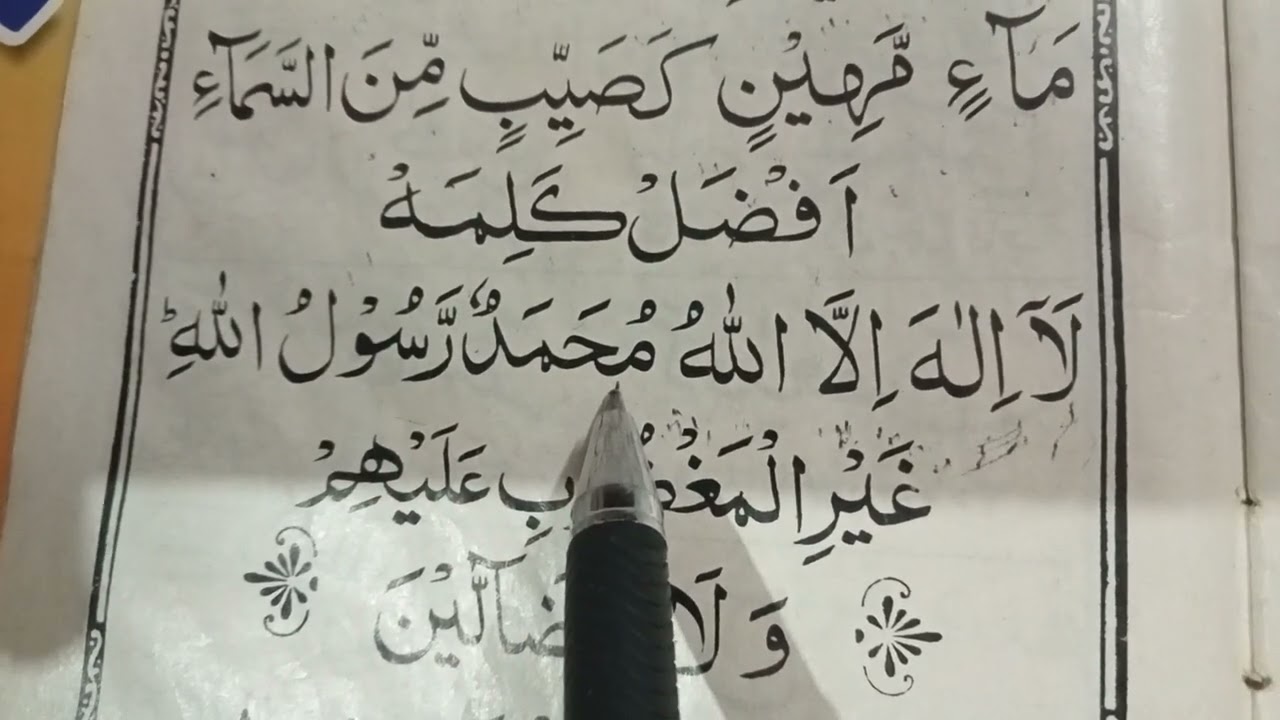 مَآءٍ مَّهِيْنٍ كَصَيِّبٍ مِّنَ السَّمَآءِ
اَفْضَلْ كَلِمَهْ
لَآ اِلٰهَ اِلَّا اللّٰهُ مُحَمَّدٌ رَّسُوْلُ اللّٰهِ ؕ
غَيْرِ الْمَغْضُوْبِ عَلَيْهِمْ
وَلَا الضَآلِّيْنَ